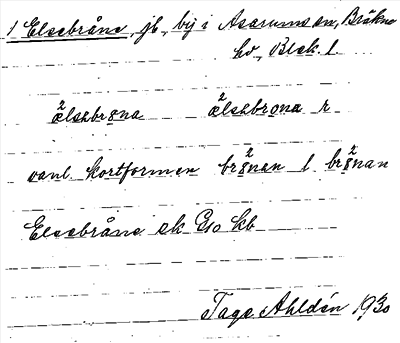 1 Elsebråne, jb., by i Asarums sn, Bräkne
hd, Blek. l.
ælsəbrɷna ælsəbrona r
vanl. kortformen brɷ̀nan l. brɷ̀nan
Elsebråne ek G10 kb
Tage Ahldén 1930